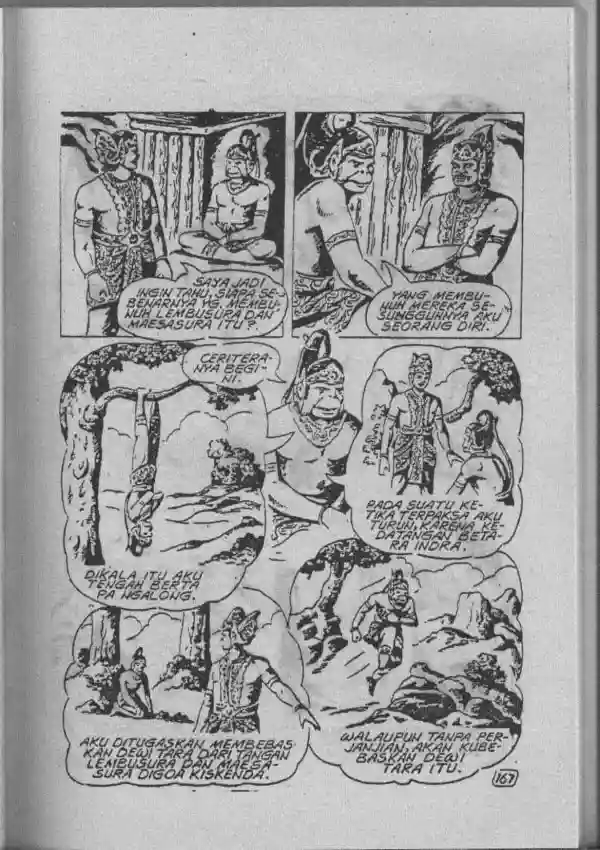 SAYA JADI
INGIN TAHU, SIAPA SE-
BENARNYA YG. MEMBU-
NUH LEMBUSURA DAN
MAESASURA ITU ?
YANG MEMBU-
NUH MEREKA SE-
SUNGGUHNYA AKU
SEORANG DIRI.
CERITERA-
NYA BEGI-
NI.
DIKALA ITU AKU
TENGAH BERTA
PA NGALONG.
PADA SUATU KE-
TIKA TERPAKSA AKU
TURUN, KARENA KE-
DATANGAN BETA-
RA INDRA.
AKU DITUGASKAN MEMBEBAS
KAN DEWI TARA DARI TANGAN
LEMBUSURA DAN MAESA-
SURA DIGOA KISKENDA.
WALAUPUN TANPA PER-
JANJIAN, AKAN KUBE-
BASKAN DEWI
TARA ITU.
167